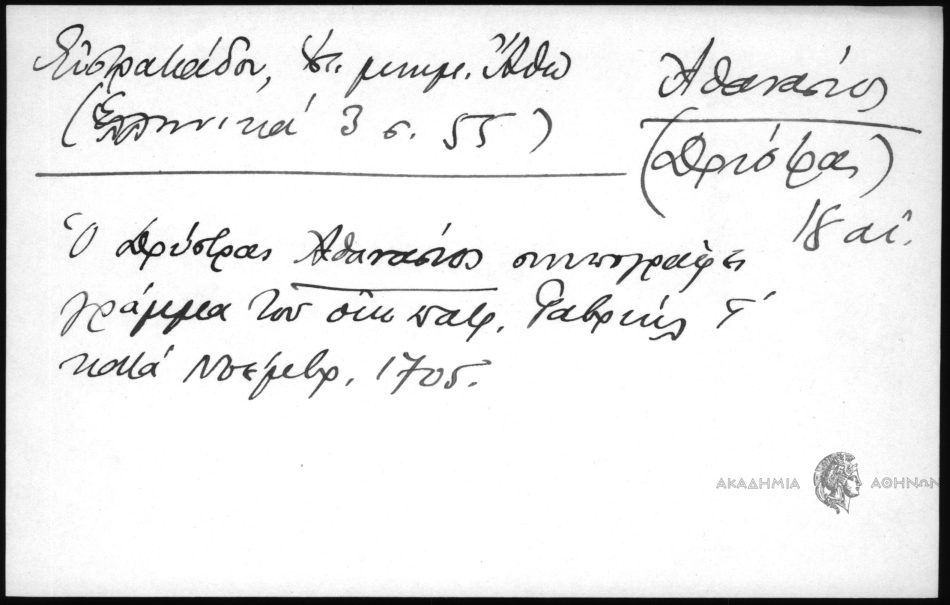 Εὐστρατιάδου, Ἱστ. μνημ. Ἄθω
(Ἑλληνικά 3 σ. 55)
Ἀθανάσιος
(Δρύστρας)
18 αἰ.
Ὁ Δρύστρας Ἀθανάσιος συνυπογράφει
γράμμα τοῦ οἰκ. πατρ. Γαβριήλ Γ΄
κατά Νοέμβρ. 1705.
ΑΚΑΔΗΜΙΑ ΑΘΗΝΩΝ